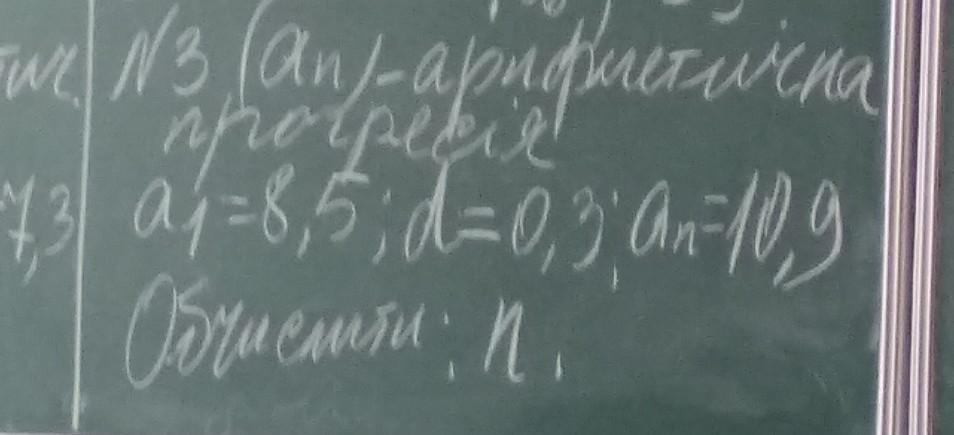 тич. N3 (an) - арифметична
прогресія
7,3 a1=8,5; d=0,3; an=10,9
Обчислити: n.